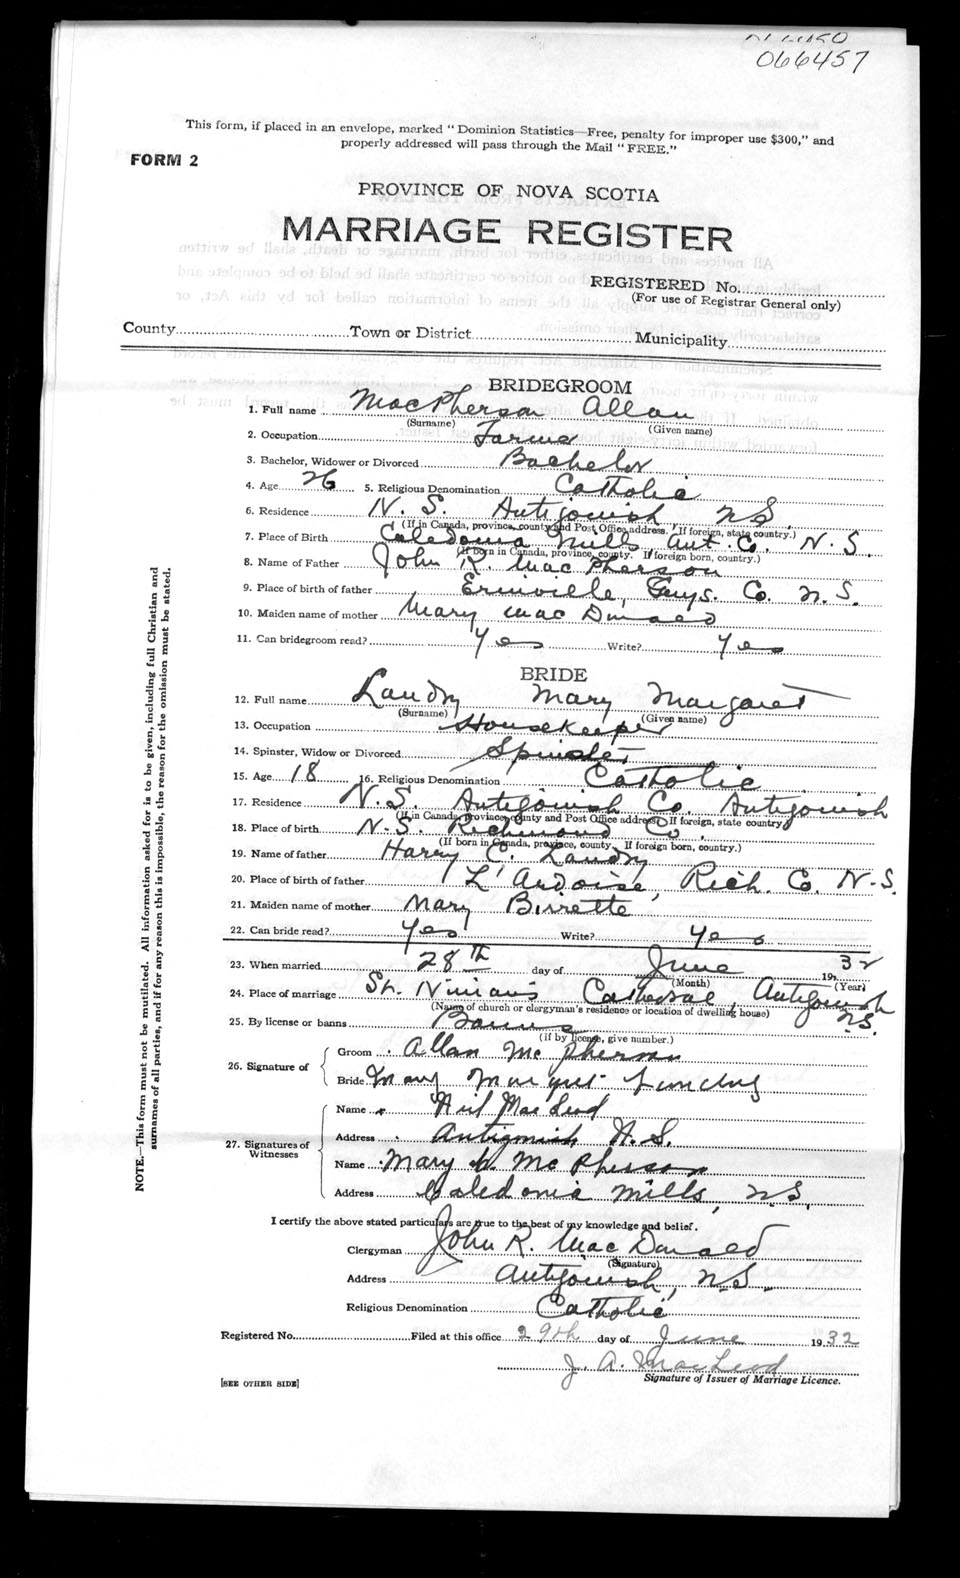 066457
This form, if placed in an envelope, marked "Dominion Statistics—Free, penalty for improper use $300," and
properly addressed will pass through the Mail "FREE."
FORM 2
PROVINCE OF NOVA SCOTIA
MARRIAGE REGISTER
REGISTERED No.
(For use of Registrar General only)
County Town or District Municipality
BRIDEGROOM
1. Full name MacPherson Allan
(Surname) (Given name)
2. Occupation Farmer
3. Bachelor, Widower or Divorced Bachelor
4. Age 26 5. Religious Denomination Catholic
6. Residence N. S. Antigonish NS.
(If in Canada, province, county and Post Office address. If foreign, state country.)
7. Place of Birth Caledonia Mills Ant. Co. N. S.
(If born in Canada, province, county. If foreign born, country.)
8. Name of Father John R. MacPherson
9. Place of birth of father Erinville, Guys. Co. N. S.
10. Maiden name of mother Mary MacDonald
11. Can bridegroom read? Yes Write? Yes
BRIDE
12. Full name Landry Mary Margaret
(Surname) (Given name)
13. Occupation Housekeeper
14. Spinster, Widow or Divorced Spinster
15. Age 18 16. Religious Denomination Catholic
17. Residence N. S. Antigonish Co. Antigonish
(If in Canada, province, county and Post Office address. If foreign, state country.)
18. Place of birth N. S. Richmond Co.
(If born in Canada, province, county. If foreign born, country.)
19. Name of father Harry C. Landry
20. Place of birth of father L'Ardoise, Rich. Co. N. S.
21. Maiden name of mother Mary
22. Can bride read? Yes Write? Yes
23. When married 28th day of June 1932
(Month) (Year)
24. Place of marriage St. Ninian's Cathedral, Antigonish
(Name of church or clergyman's residence or location of dwelling house) N.S.
25. By license or banns Banns
(if by license, give number.)
26. Signature of
Groom Allan McPherson
Bride Mary Margret Landry
27. Signatures of Witnesses
Name Neil MacLeod
Address Antigonish N. S.
Name Mary McPherson
Address Caledonia Mills, N S,
I certify the above stated particulars are true to the best of my knowledge and belief.
Clergyman John R. MacDonald
(Signature)
Address Antigonish, N.S.
Religious Denomination Catholic
Registered No. Filed at this office 29th day of June 1932
J. A. MacLeod
Signature of Issuer of Marriage Licence.
[SEE OTHER SIDE]
NOTE.—This form must not be mutilated. All information asked for is to be given, including full Christian and
surnames of all parties, and if for any reason this is impossible, the reason for the omission must be stated.